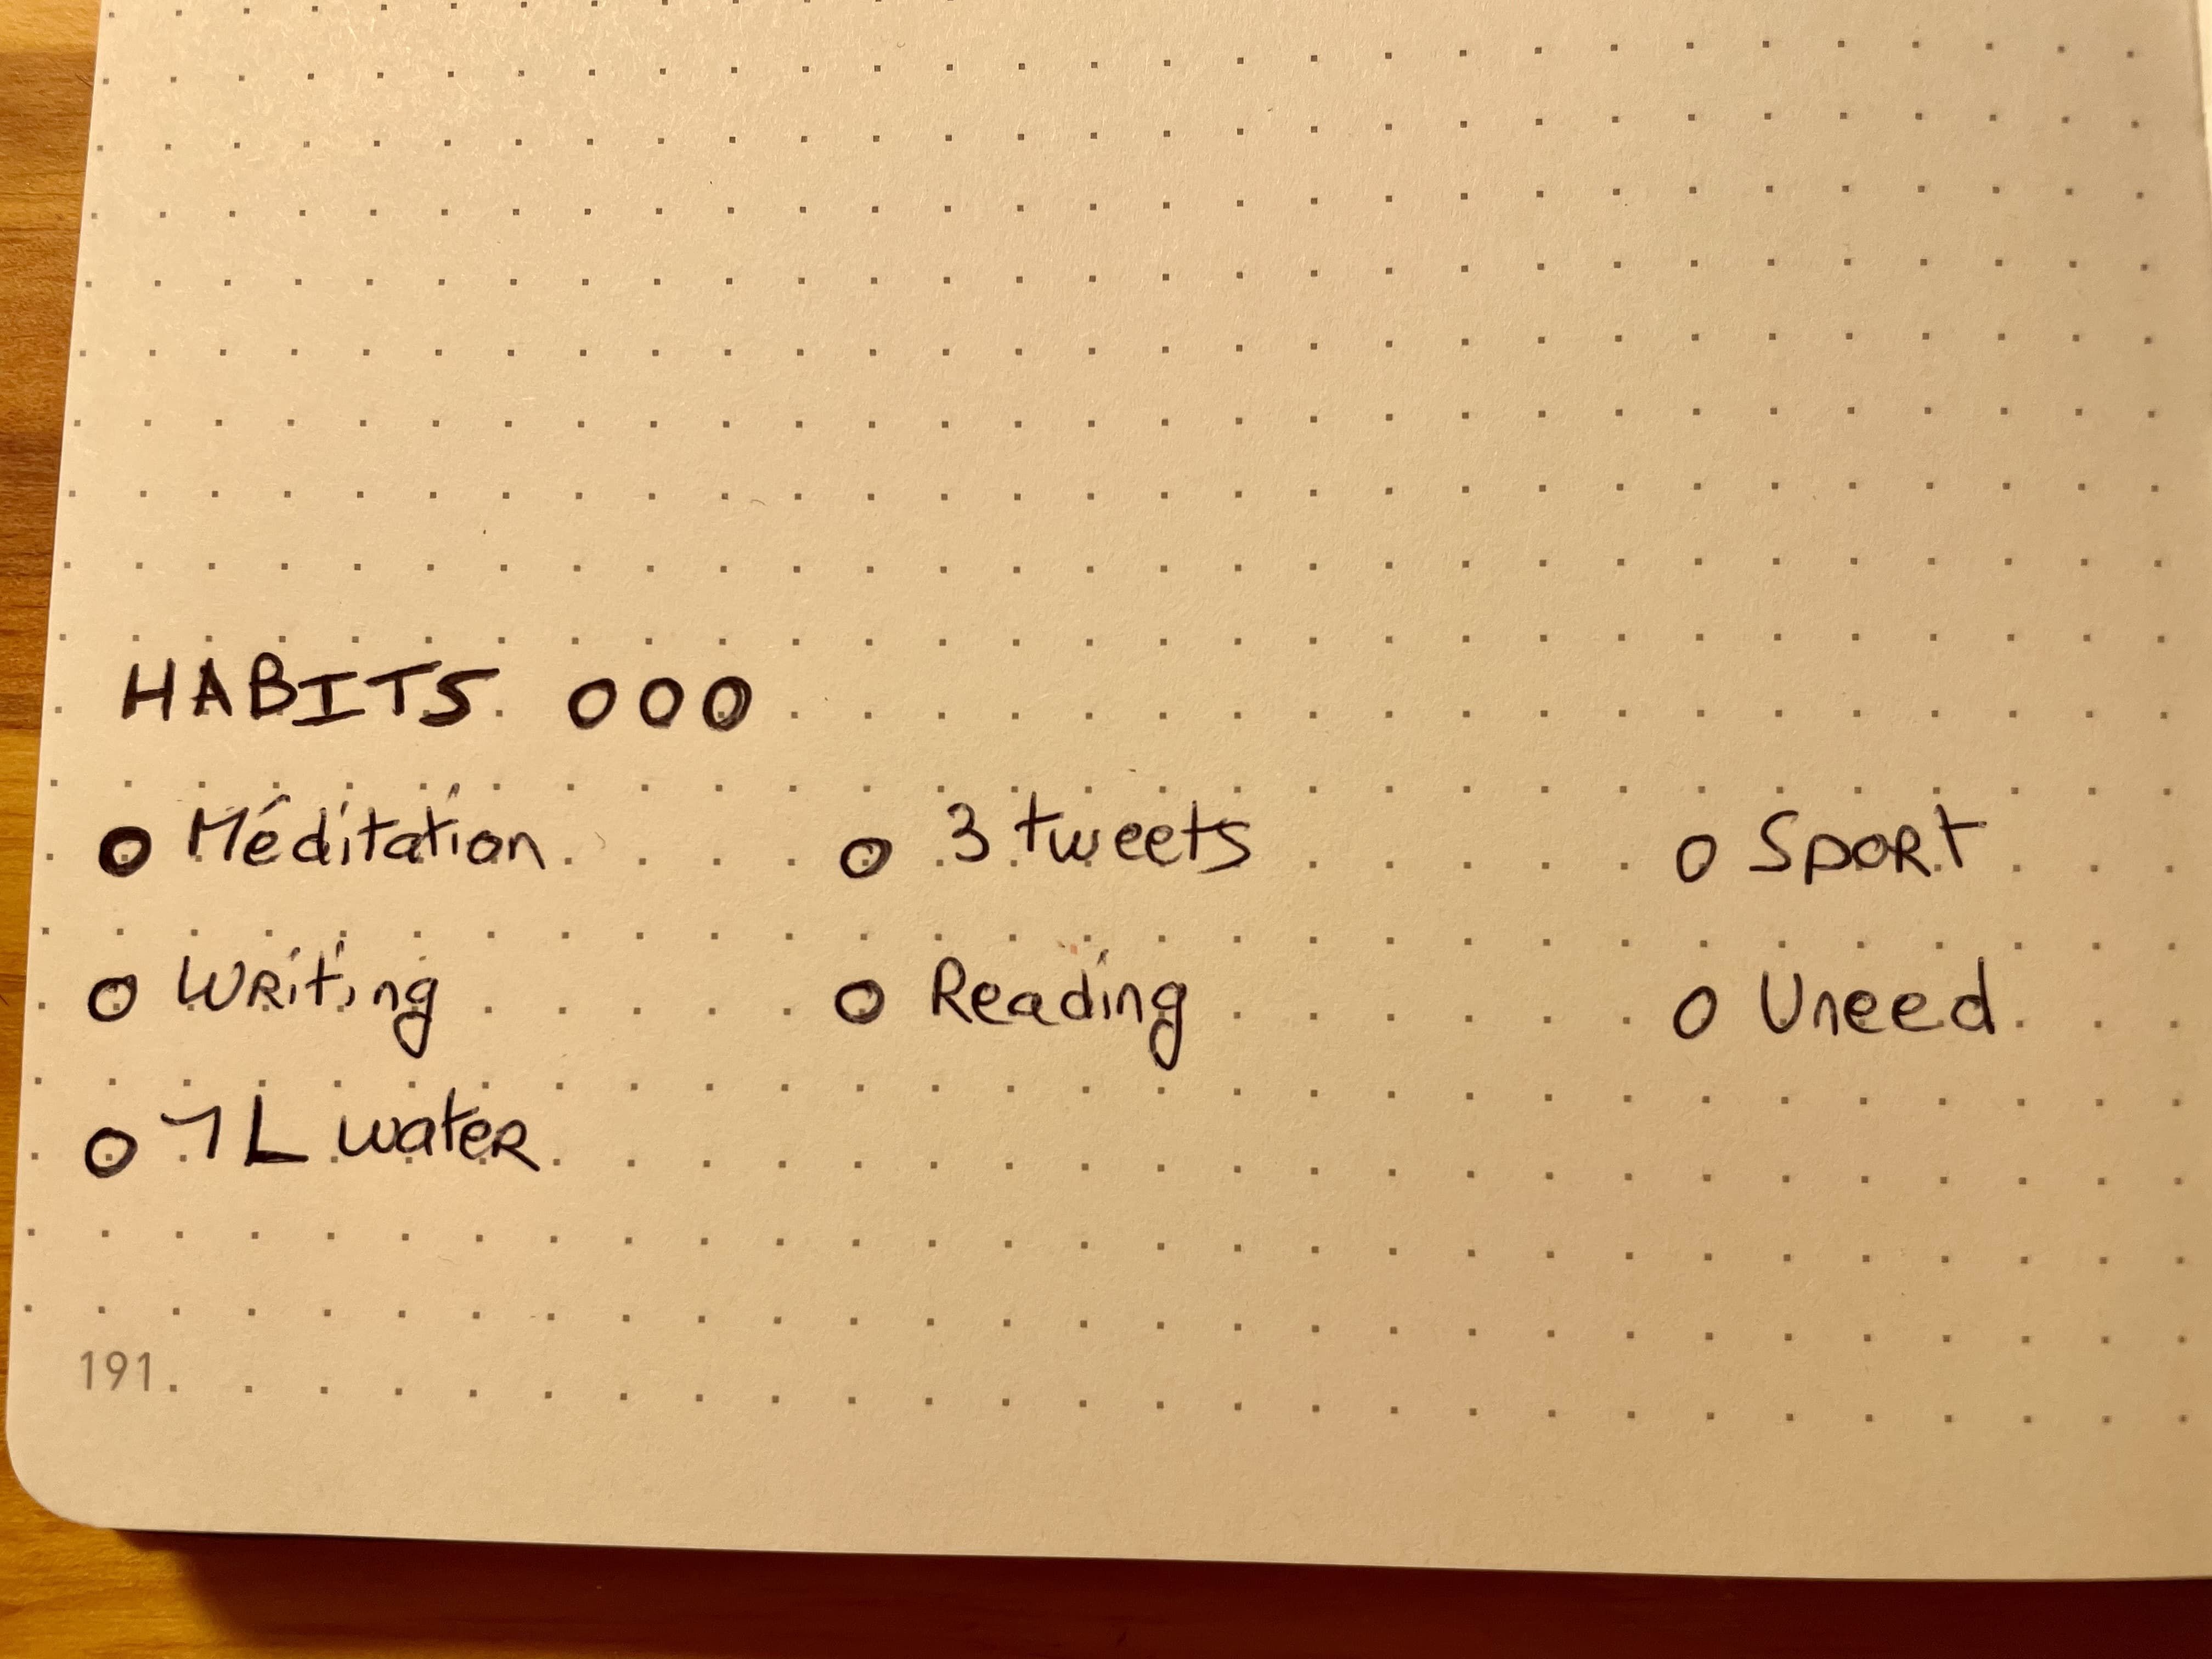 HABITS ooo
o Méditation o 3 tweets o Sport
o Writing o Reading o Uneed
o 1L water
191